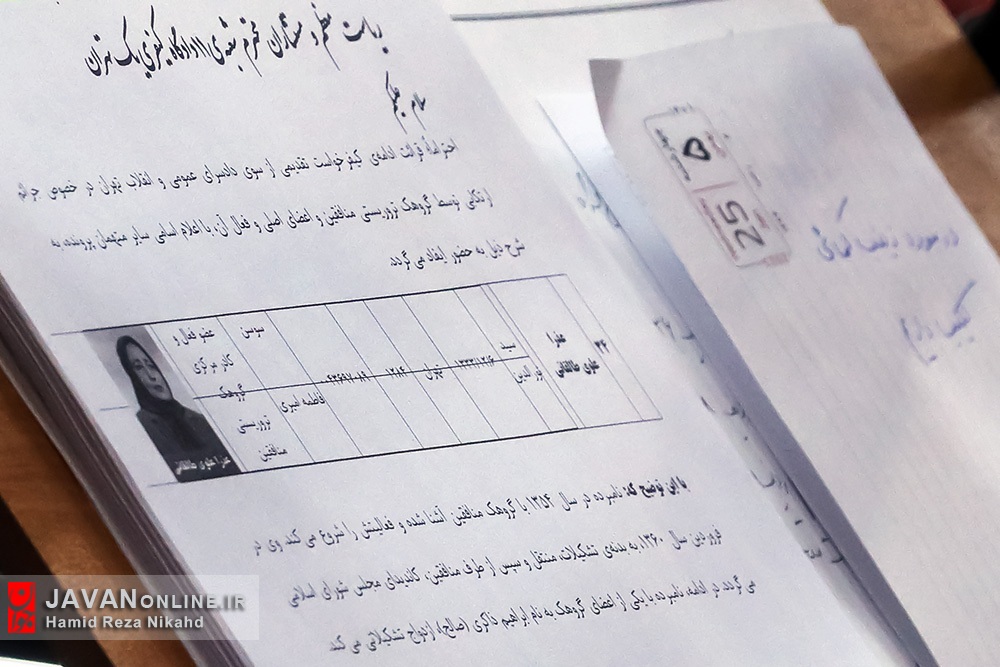 ریاست معظم و مستشاران محترم شعبه‌ی ۱۱ دادگاه کیفری یک تهران
سلام علیکم
احتراماً؛ قرائت ادامه‌ی کیفرخواست تقدیمی از سوی دادسرای عمومی و انقلاب تهران در خصوص جرائم
ارتکابی توسط گروهک تروریستی منافقین و اعضای اصلی و فعال آن، با اعلام اسامی سایر متهمان پرونده، به
شرح ذیل به حضور ایفاد می گردد.
۳۴
عذرا
علوی طالقانی
سید
نورالدین
تهران
۱۲۸۴
فاطمه امیری
سوسن
عضو فعال و
کادر مرکزی
گروهک
تروریستی
منافقین
عذرا علوی طالقانی
با این توضیح که: نامبرده در سال ۱۳۵۴ با گروهک منافقین آشنا شده و فعالیتش را شروع می کند. وی در
فروردین سال ۱۳۶۰، به بدنه‌ی تشکیلات، منتقل و سپس از طرف منافقین، کاندیدای مجلس شورای اسلامی
می گردد. در ادامه، نامبرده با یکی از اعضای گروهک به نام ابراهیم ذاکری (صالح)، ازدواج تشکیلاتی می کند.
۵
25
JAVANONLINE.IR
Hamid Reza Nikahd